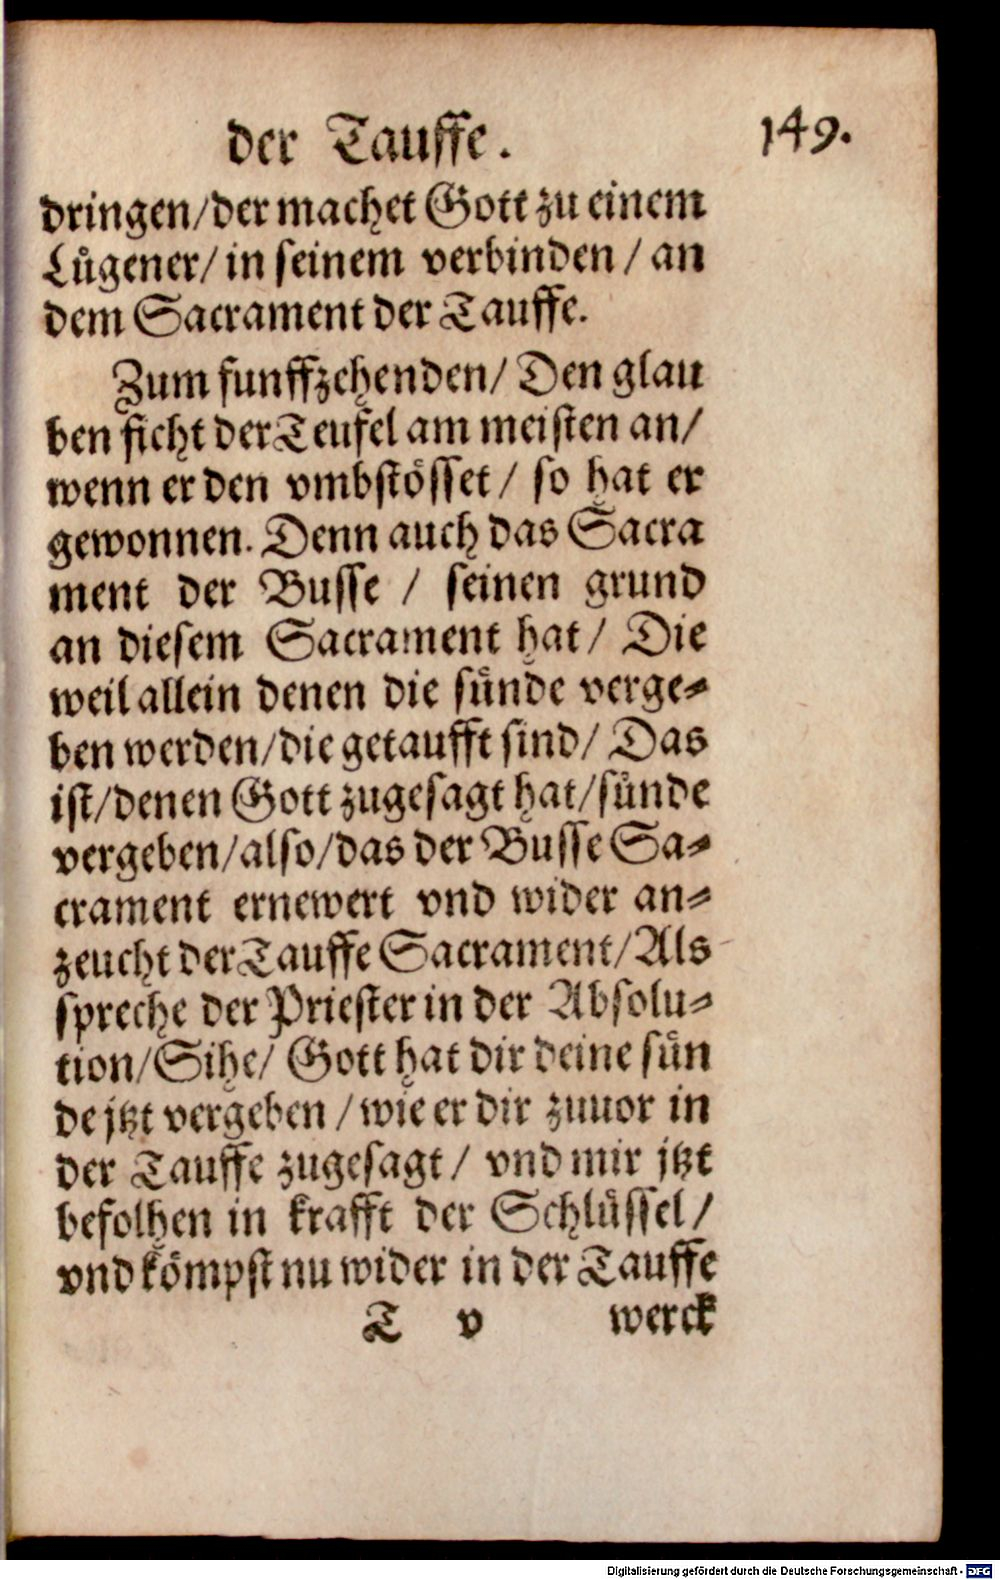 der Tauffe.
149.
dringen/der machet Gott zu einem
Lu&#868;gener/ in seinem verbinden / an
dem Sacrament der Tauffe.
Zum funffzehenden/ Den glau
ben ficht der Teufel am meisten an/
wenn er den vmbstösset / so hat er
gewonnen. Denn auch das Sacra
ment der Busse / seinen grund
an diesem Sacrament hat/ Die
weil allein denen die sünde verge⸗
ben werden/die getaufft sind/ Das
ist/denen Gott zugesagt hat/sünde
vergeben/also/das der Busse Sa⸗
crament ernewert vnd wider an⸗
zeucht der Tauffe Sacrament/Als
spreche der Priester in der Absolu⸗
tion/Sihe/ Gott hat dir deine sün
de jtzt vergeben /wie er dir zuuor in
der Tauffe zugesagt/ vnd mir jtzt
befolhen in krafft der Schlüssel/
vnd kömpst nu wider in der Tauffe
T v werck
Digitalisierung gefördert durch die Deutsche Forschungsgemeinschaft - DFG